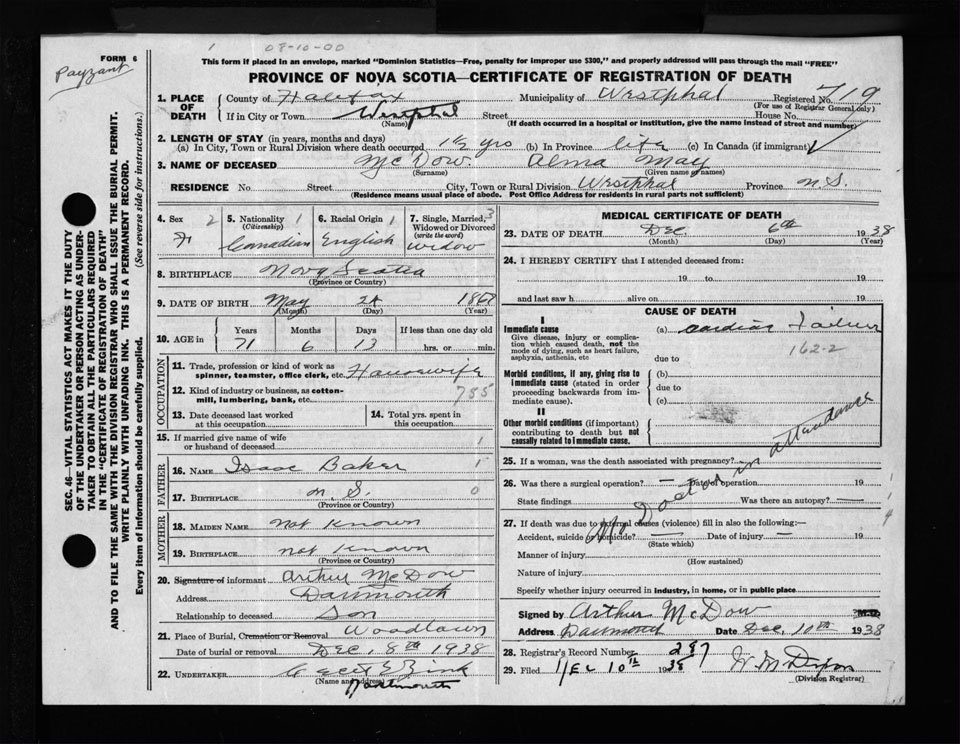 1 08-10-00
Payzant
FORM 6
This form if placed in an envelope, marked "Dominion Statistics—Free, penalty for improper use $300," and properly addressed will pass through the mail "FREE"
PROVINCE OF NOVA SCOTIA—CERTIFICATE OF REGISTRATION OF DEATH
SEC. 46—VITAL STATISTICS ACT MAKES IT THE DUTY
OF THE UNDERTAKER OR PERSON ACTING AS UNDER-
TAKER TO OBTAIN ALL THE PARTICULARS REQUIRED
IN THE "CERTIFICATE OF REGISTRATION OF DEATH"
AND TO FILE THE SAME WITH THE DIVISION REGISTRAR WHO SHALL ISSUE THE BURIAL PERMIT.
WRITE PLAINLY WITH UNFADING INK. THIS IS A PERMANENT RECORD.
Every item of information should be carefully supplied. (See reverse side for instructions.)
1. PLACE OF DEATH
County of Halifax Municipality of Westphal Registered No. 719
(For use of Registrar General only)
If in City or Town Westphal Street House No.
(Name) (If death occurred in a hospital or institution, give the name instead of street and number)
2. LENGTH OF STAY (in years, months and days)
(a) In City, Town or Rural Division where death occurred 1½ yrs (b) In Province life (c) In Canada (if immigrant)
3. NAME OF DECEASED McDow Alma May
(Surname) (Given name or names)
RESIDENCE No. Street City, Town or Rural Division Westphal Province N.S.
(Residence means usual place of abode. Post Office Address for residents in rural parts not sufficient)
4. Sex 2 F
5. Nationality 1 (Citizenship) Canadian
6. Racial Origin 1 English
7. Single, Married, Widowed or Divorced 3 (write the word) widow
8. BIRTHPLACE Nova Scotia
(Province or Country)
9. DATE OF BIRTH May 24
(Month) (Day) (Year)
10. AGE in Years Months Days If less than one day old
71 6 13 hrs. or min.
OCCUPATION
11. Trade, profession or kind of work as spinner, teamster, office clerk, etc. Housewife
12. Kind of industry or business, as cotton-mill, lumbering, bank, etc. 785
13. Date deceased last worked at this occupation
14. Total yrs. spent in this occupation
15. If married give name of wife or husband of deceased 1
FATHER
16. NAME Isaac Baker 1
17. BIRTHPLACE N.S. 0
(Province or Country)
MOTHER
18. MAIDEN NAME not known
19. BIRTHPLACE not known
(Province or Country)
20. Signature of informant Arthur McDow
Address Dartmouth
Relationship to deceased Son
21. Place of Burial, Cremation or Removal Woodlawn
Date of burial or removal Dec. 8th 1938
22. UNDERTAKER Zink
(Name and address) Dartmouth
MEDICAL CERTIFICATE OF DEATH
23. DATE OF DEATH Dec 6th 1938
(Month) (Day) (Year)
24. I HEREBY CERTIFY that I attended deceased from:
19 to 19
and last saw h alive on 19
CAUSE OF DEATH
I
Immediate cause (a) Cardiac Failure
Give disease, injury or complication which caused death, not the mode of dying, such as heart failure, asphyxia, asthenia, etc 162-2
due to
Morbid conditions, if any, giving rise to immediate cause (stated in order proceeding backwards from immediate cause).
(b)
due to
(c)
II
Other morbid conditions (if important) contributing to death but not causally related to immediate cause.
No Doctor in attendance
25. If a woman, was the death associated with pregnancy?
26. Was there a surgical operation? — Date of operation 19
State findings Was there an autopsy? —
27. If death was due to external causes (violence) fill in also the following:—
Accident, suicide or homicide? — Date of injury — 19
(State which)
Manner of injury
(How sustained)
Nature of injury
Specify whether injury occurred in industry, in home, or in public place
Signed by Arthur McDow M.D.
Address Dartmouth Date Dec 10th 1938
28. Registrar's Record Number 287
29. Filed Dec 10th 1938
(Division Registrar)